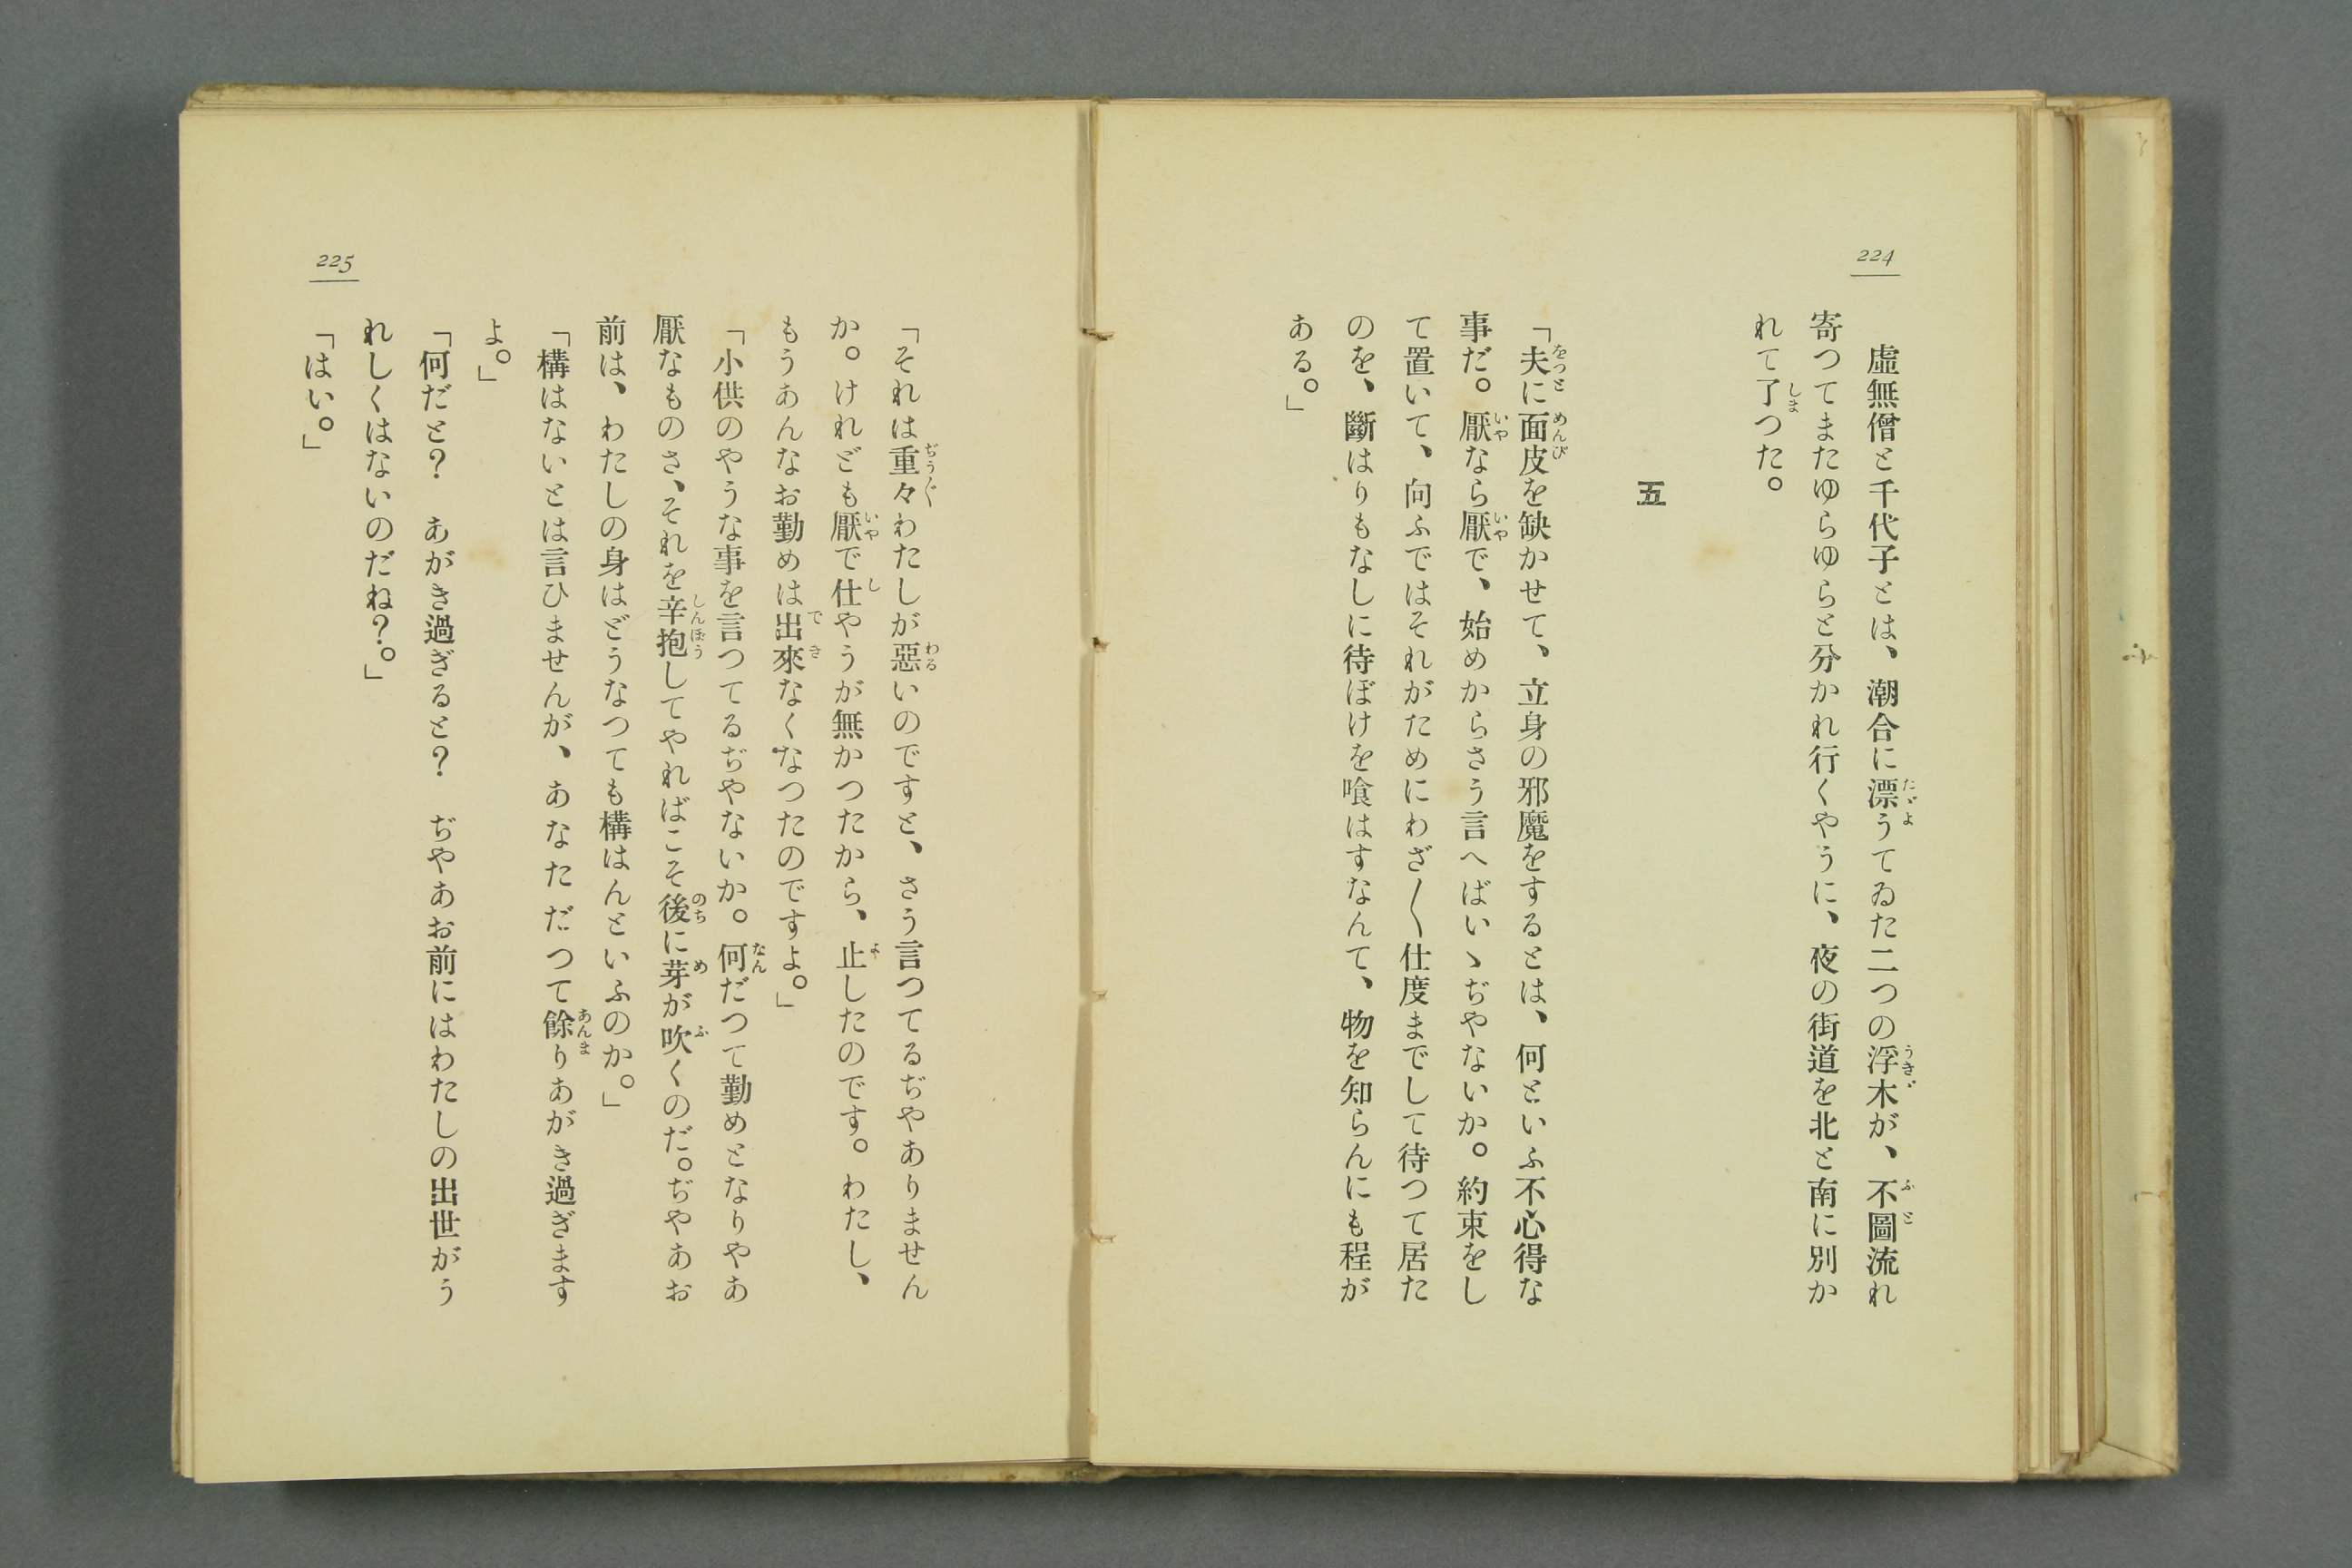 224
虛無僧と千代子とは、潮合に漂うてゐた二つの浮木が、不圖流れ
寄つてまたゆらゆらと分かれ行くやうに、夜の街道を北と南に別か
れて了つた。
五
「夫に面皮を缺かせて、立身の邪魔をするとは、何といふ不心得な
事だ。厭なら厭で、始めからさう言へばいゝぢやないか。約束をし
て置いて、向ふではそれがためにわざ〱仕度までして待つて居た
のを、斷はりもなしに待ぼけを喰はすなんて、物を知らんにも程が
ある。」
225
「それは重々わたしが惡いのですと、さう言つてるぢやありません
か。けれども厭で仕やうが無かつたから、止したのです。わたし、
もうあんなお勤めは出來なくなつたのですよ。」
「小供のやうな事を言つてるぢやないか。何だつて勤めとなりやあ
厭なものさ、それを辛抱してやればこそ後に芽が吹くのだ。ぢやあお
前は、わたしの身はどうなつても構はんといふのか。」
「構はないとは言ひませんが、あなただつて餘りあがき過ぎます
よ。」
「何だと？　あがき過ぎると？　ぢやあお前にはわたしの出世がう
れしくはないのだね？。」
「はい。」